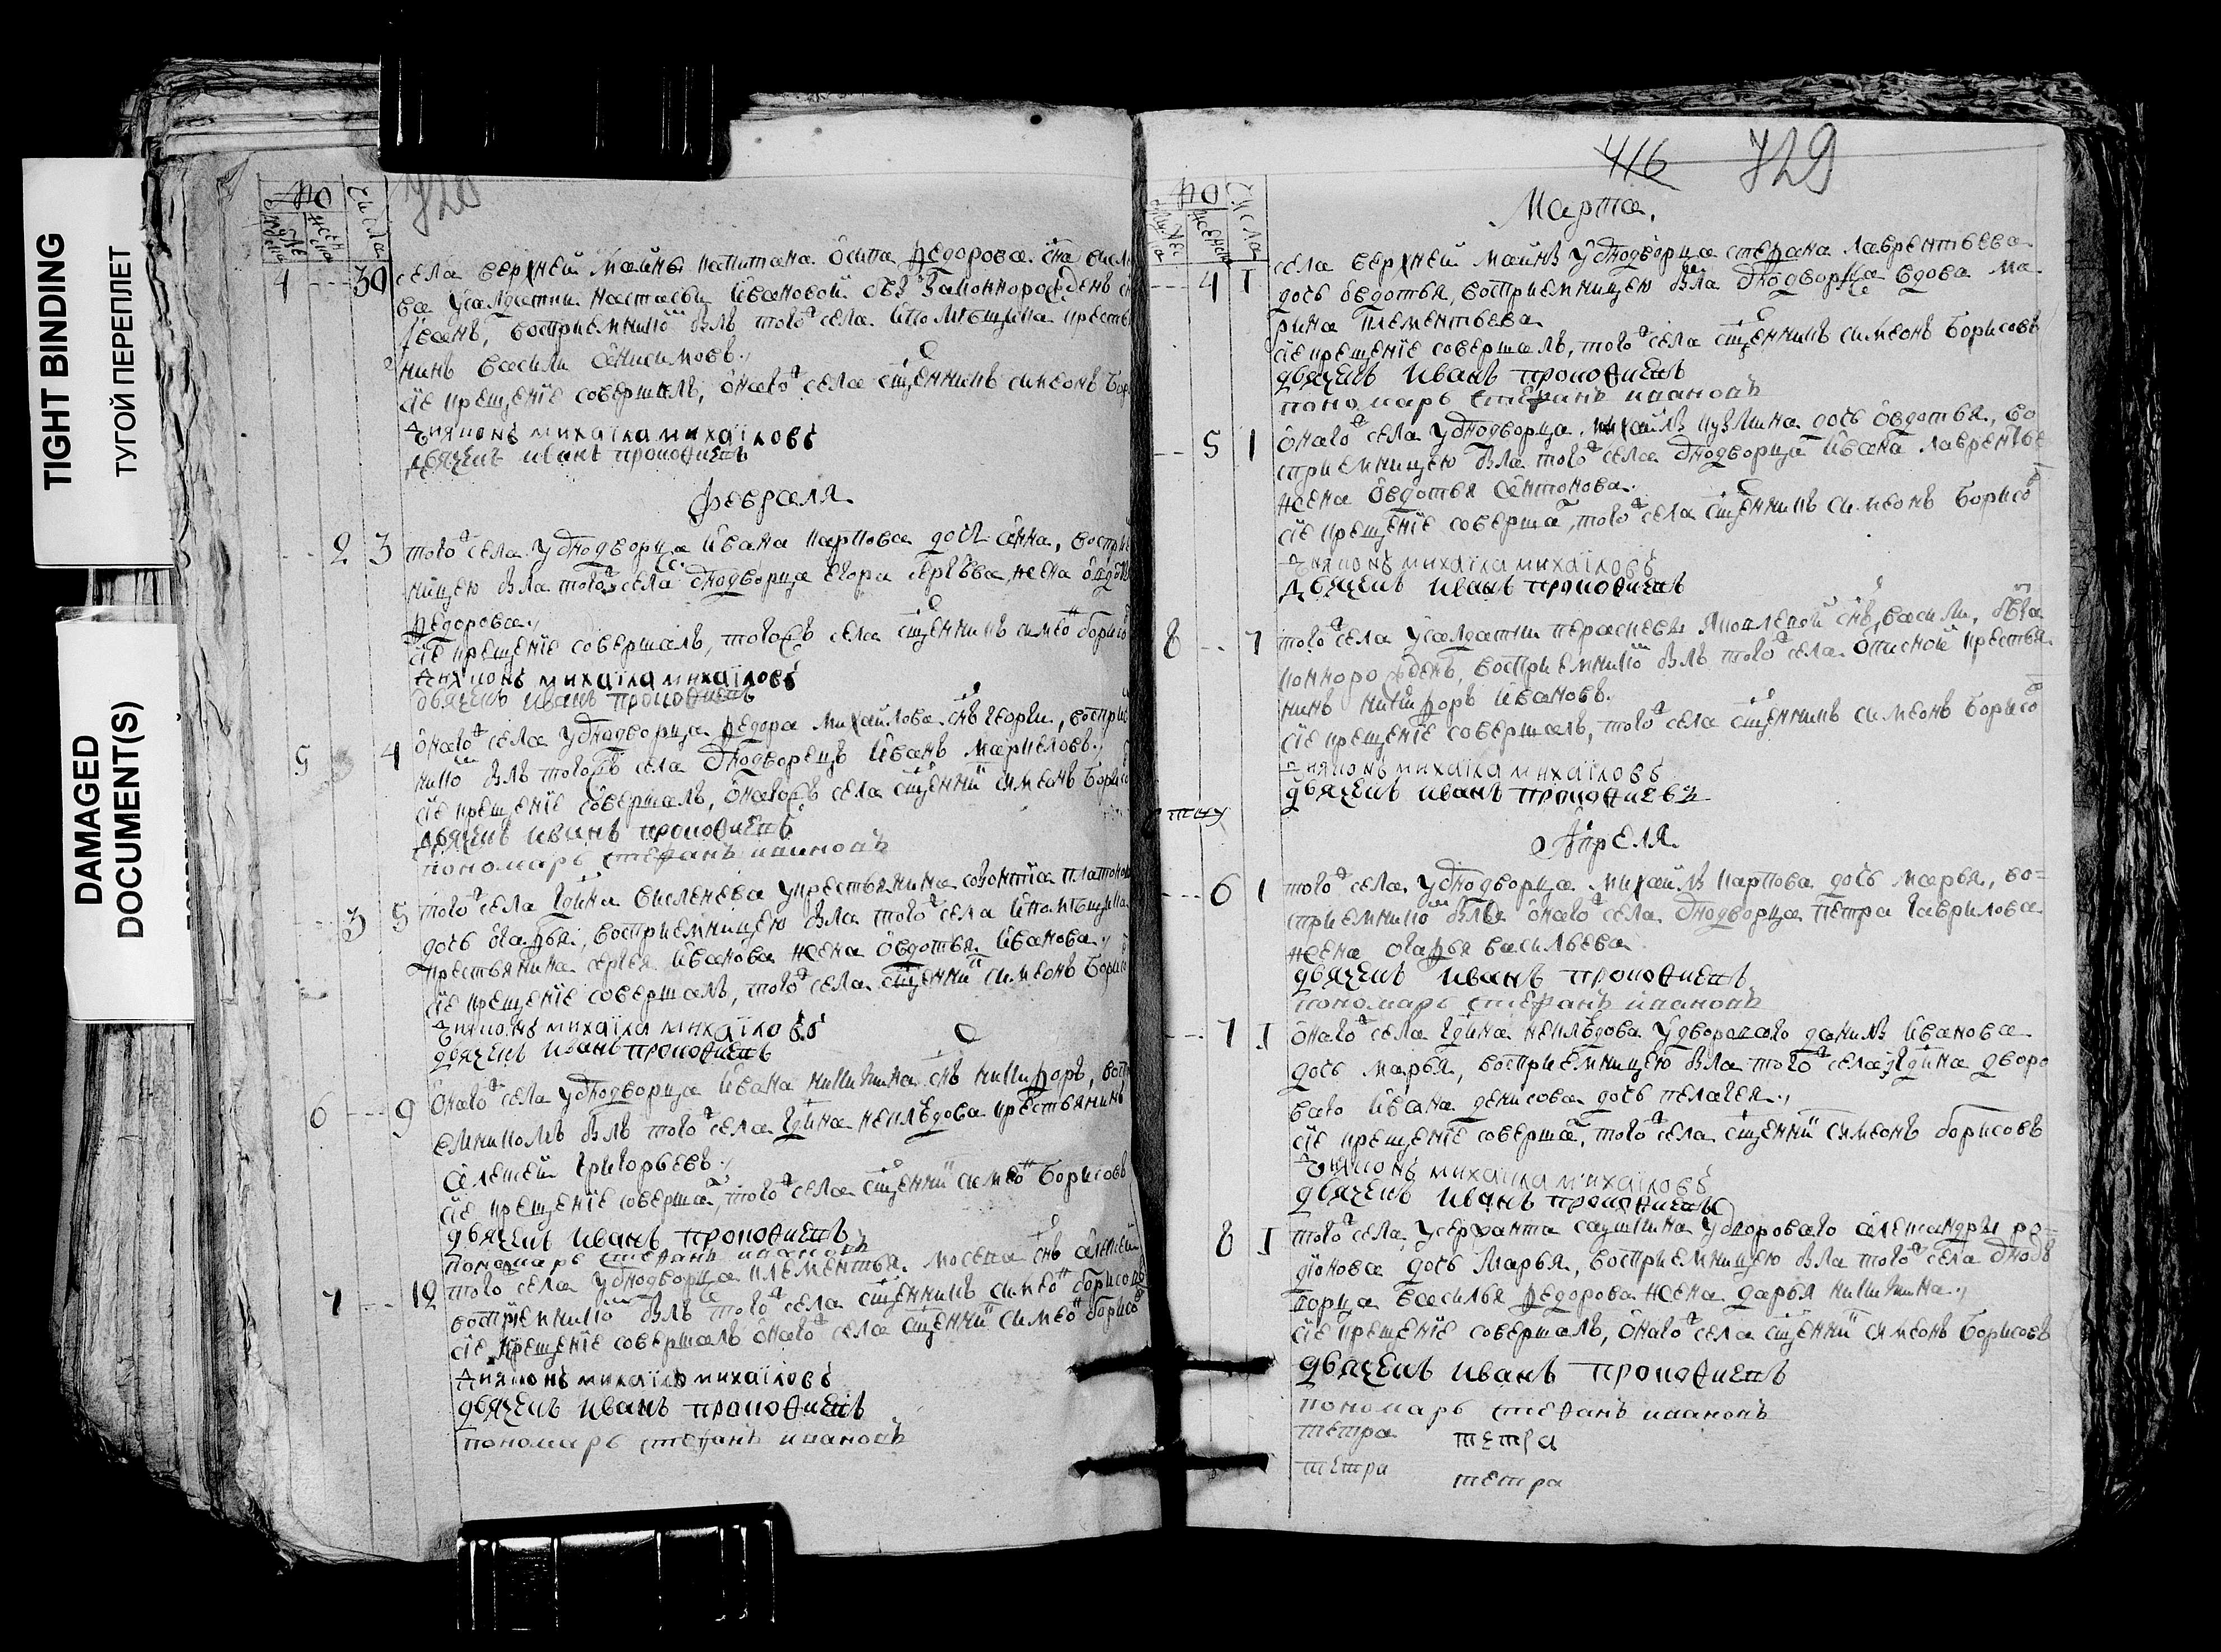 TIGHT BINDING
ТУГОЙ ПЕРЕПЛЕТ
DAMAGED
DOCUMENT(S)
числа
4 30 села верхней майны капитана осипа федорова сна
ва усалдатки настасьи ивановой незаконнорожденъ
восприемникомъ былъ того села кресть
нинъ василй анисимовъ
сие крещение совершалъ, онаго села сщенникъ симеонъ Бор
дияконъ михаіла михаіловъ
дьячекъ иванъ прокофиевъ
февраля
2 3 того села уоднодворца ивана карпова дочь анна, воспри
ницею была того села однодворца егора сергѣва жена
федорова
сие крещение совершалъ, тогожъ села сщенникъ симео борисо
дияконъ михаіла михаіловъ
дьячекъ иванъ прокофиевъ
5 4 онаго села уоднодворца федора михайлова снъ георги, воспри
нико былъ тогожъ села однодворецъ иванъ
сие крещение совершалъ, онагожъ села сщенни симеонъ Борисо
дьячекъ иванъ прокофиевъ
пономарь стефанъ ивановъ
3 5 того села гдина кисленева укрестьянина созонтиа платонова
дочь агафья, восприемницею была того села
крестьянина сергея иванова жена овдотья иванова
сие крещение совершалъ, того села сщенни симеонъ Борисо
дияконъ михаіла михаіловъ
дьячекъ иванъ прокофиевъ
6 9 онаго села уоднодворца ивана никитина снъ никифоръ, вос
емникомъ былъ того села гдина неклѣдова крестьянинъ
алексей григорьевъ
сие крещение соверша, того села сщенни симео Борисовъ
дьячекъ иванъ прокофиевъ
пономарь стефанъ ивановъ
7 12 того села уоднодворца клементья мосеева снъ алексей
восприемнико былъ того села сщенникъ симео борисовъ
сие крещение совершалъ онаго села сщенни симео борисо
дияконъ михаіла михаіловъ
дьячекъ иванъ прокофиевъ
пономарь стефанъ ивановъ
416 729
числа
Марта
4 1 села верхней майнѣ уоднодворца стефана лаврентьева
дочь овдотья, восприемницею была однодворка вдова ма
рина клементьева
сие крещение совершалъ, того села сщенникъ симеонъ Борисовъ
дьячекъ иванъ прокофиевъ
пономарь стефанъ ивановъ
5 1 онаго села уоднодворца михайлѣ кузмина дочь овдотья, во
сприемницею была того села однодворца ивана лаврентье
жена овдотья антонова
сие крещение соверша, того села сщенникъ симеонъ Борисо
дияконъ михаіла михаіловъ
дьячекъ иванъ прокофиевъ
8 7 того села усалдатки парасковьи яковлевой снъ, василй,
коннорожденъ, восприемнико былъ того села описной крестья
нинъ никифоръ ивановъ
сие крещение совершалъ, того села сщенникъ симеонъ Борисо
дияконъ михаіла михаіловъ
дьячекъ иванъ прокофиевъ
Апреля
6 1 того села уоднодворца михайлѣ карпова дочь марья, во=
сприемнико была онаго села однодворца петра гаврилова
жена агафья васильева
дьячекъ иванъ прокофиевъ
пономарь стефанъ ивановъ
7 1 онаго села гдина неклѣдова удворового данилѣ иванова
дочь марья, восприемницею была того села гдина дворо
ваго ивана денисова дочь пелагея
сие крещение соверша, того села сщенни симеонъ борисовъ
дияконъ михаила михаіловъ
дьячекъ иванъ прокофиевъ
8 1 того села, усержанта удвороваго александры ро=
дионова дочь Марья, восприемницею была того села однодв
ворца василья федорова жена дарья никитина
сие крещение совершалъ, онаго села сщенни симеонъ Борисовъ
дьячекъ иванъ прокофиевъ
пономарь стефанъ ивановъ
петра петра
петра петра